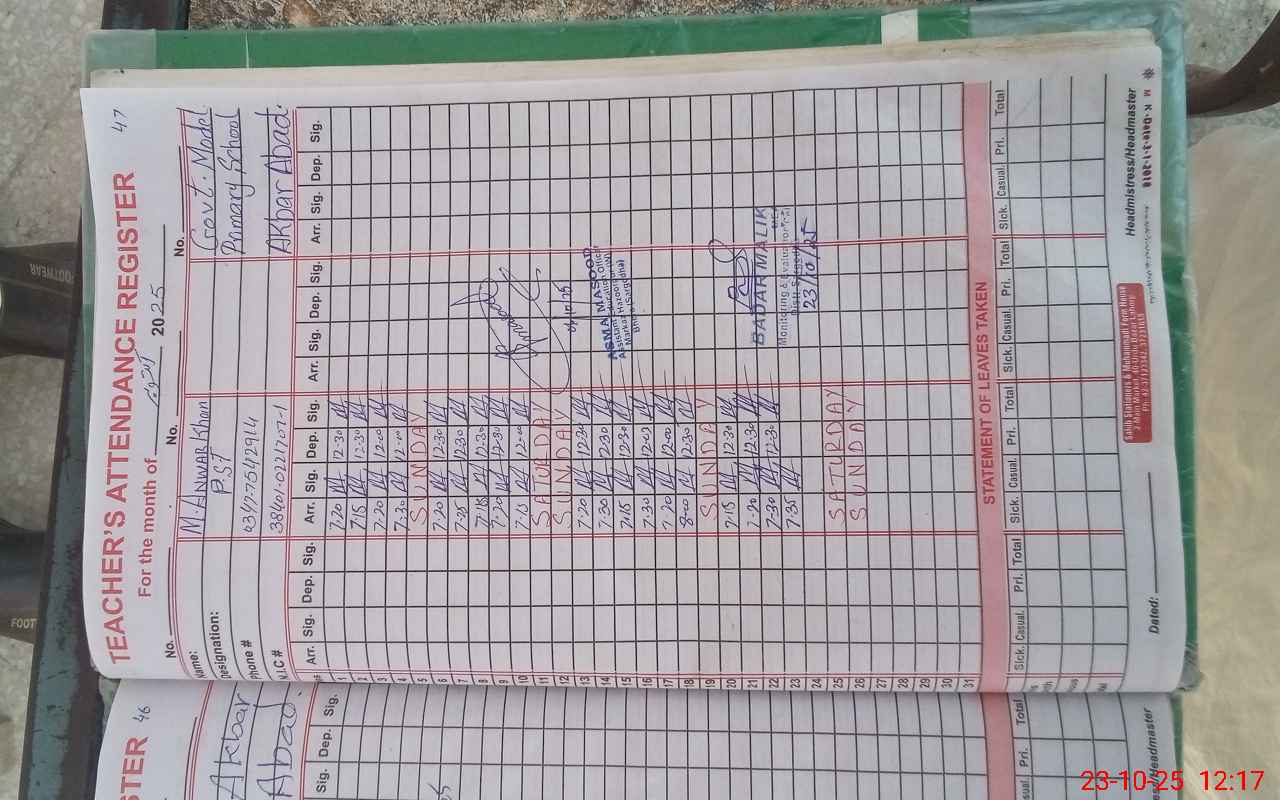 TEACHER'S ATTENDANCE REGISTER 47
For the month of اکتوبر 2025
No. No. No. No.
Name: M. ANWAR Khan Govt. Model
Designation: P.S.T Primary School
Phone # 0347-7542914 Akbar Abad.
N.I.C # 38401-0221707-1
Arr. Sig. Dep. Sig. Arr. Sig. Dep. Sig. Arr. Sig. Dep. Sig. Arr. Sig. Dep. Sig.
1 7-20 12-30
2 7-15 12-30
3 7-20 12-00
4 7-30 12-00
5 SUNDAY
6 7-20 12-30
7 7-25 12-30
8 7-15 12-30
9 7-20 12-30
10 7-15 12-00
11 SATURDAY
12 SUNDAY
13 7-20 12-30
14 7-30 12-30 ASMA MASOOD
Assistant Education Officer
15 7-15 12-30 Markaz Hazoorpur (W)
Bhera (Sargodha)
16 7-30 12-00
17 7-20 12-00
18 8-00 12-30
19 SUNDAY
20 7-15 12-30
21 7-20 12-30 BADAR MALIK
22 7-30 12-30 Monitoring & Evaluation
23 7-35 Distt. Sargodha
23/10/25
24
25 SATURDAY
26 SUNDAY
27
28
29
30
31
STATEMENT OF LEAVES TAKEN
Sick. Casual. Pri. Total Sick. Casual. Pri. Total Sick. Casual. Pri. Total Sick. Casual. Pri. Total
Sahib Stationers & Muhammadi Form House
2-Main Market, 40-Urdu Bazar Lahore.
Dated: Headmistress/Headmaster
M K Date-3-1-2018
STER 46
Akbar
Abad.
Sig. Dep. Sig.
Pri. Total
ess/Headmaster
FOOTWEAR
FOOT
23-10-25 12:17